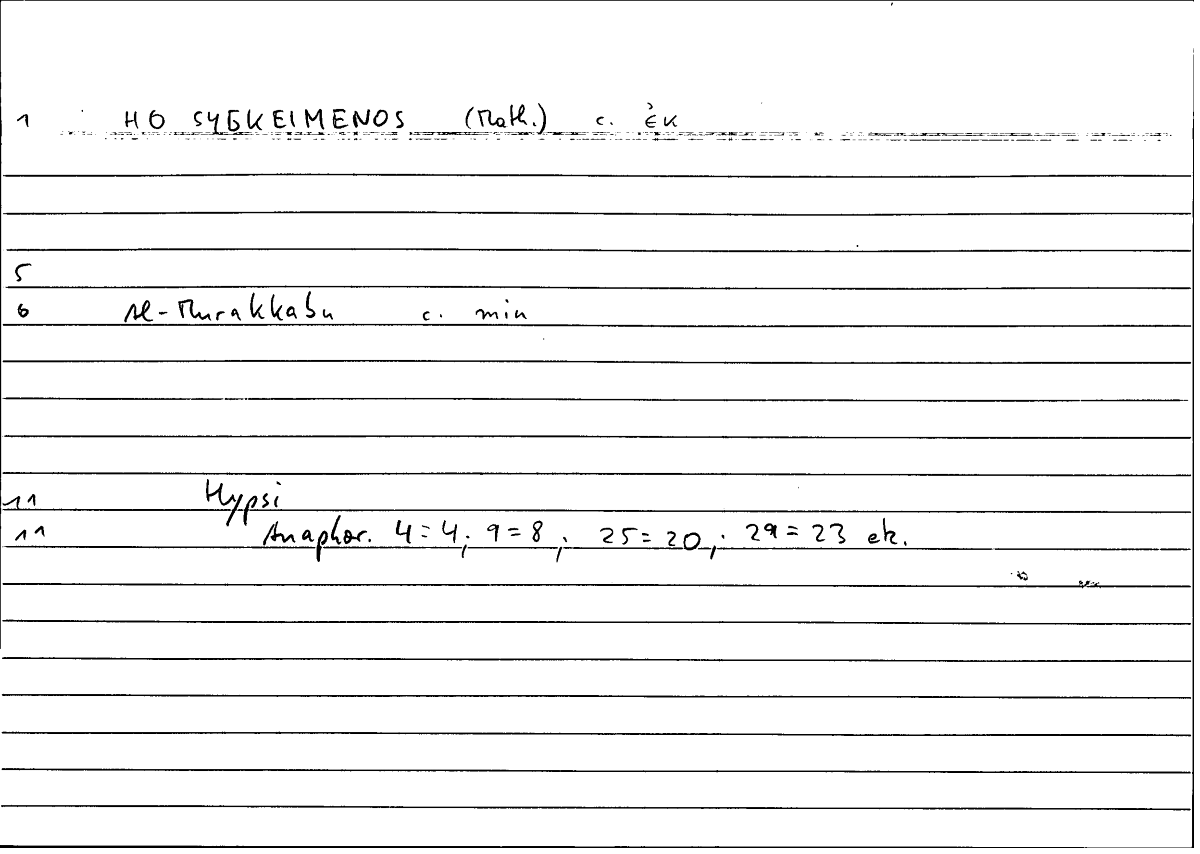 1 HO SYGKEIMENOS (Math.) c. ἐκ
5
6 Al-Murakkabu c. min
11 Hypsi
11 Anaphor. 4=4; 9=8; 25=20; 29=23 ek.